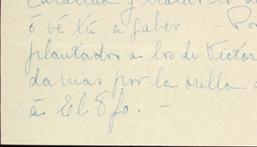 ó vé tú a saber. — Po
plantados a los de Victor
damas por la orilla
á El 8 fo. —